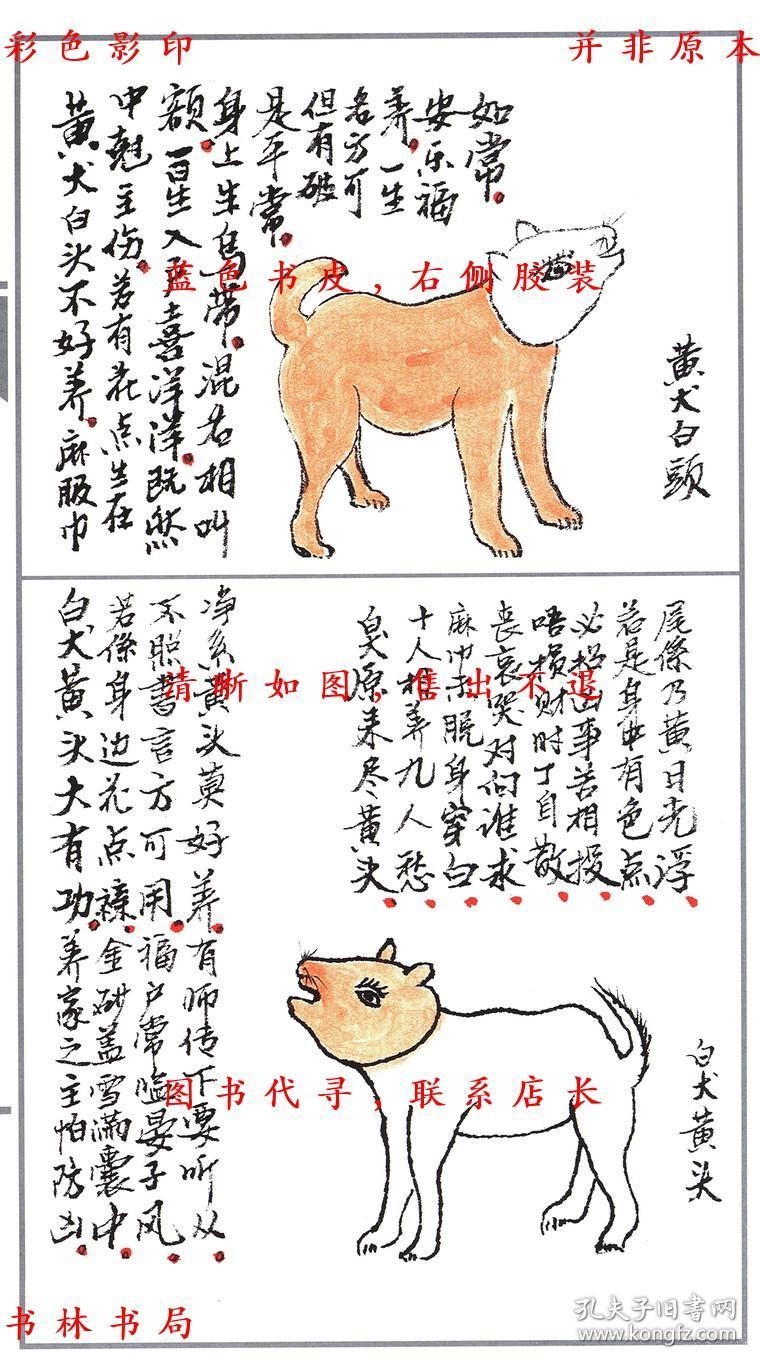 彩色影印
并非原本
黄犬白頭
黄犬白头不好养。麻服巾
中魁主伤。若有花点生在
额。一百生入喜洋洋。既然
身上生乌带。混名相叫
是平常。
但有破
名方可
养。一生
安乐福
如常。
蓝色书皮,右侧胶装
清晰如图,售出不退
白犬黄头
白犬原来尽黄头
十人相养九人愁
麻巾未脱身穿白
丧哀哭对问谁求
唔损财时丁自散
必招凶事苦相投
若是身中有色点
尾條乃黄日光浮
白犬黄头大有功。养家之主怕防凶
若條身边花点襍。金砂盖雪满囊中
不照書言方可用。福户常临晏子风
净系黄头莫好养。有师传下要听从
图书代寻,联系店长
书林书局
孔夫子旧书网
www.kongfz.com